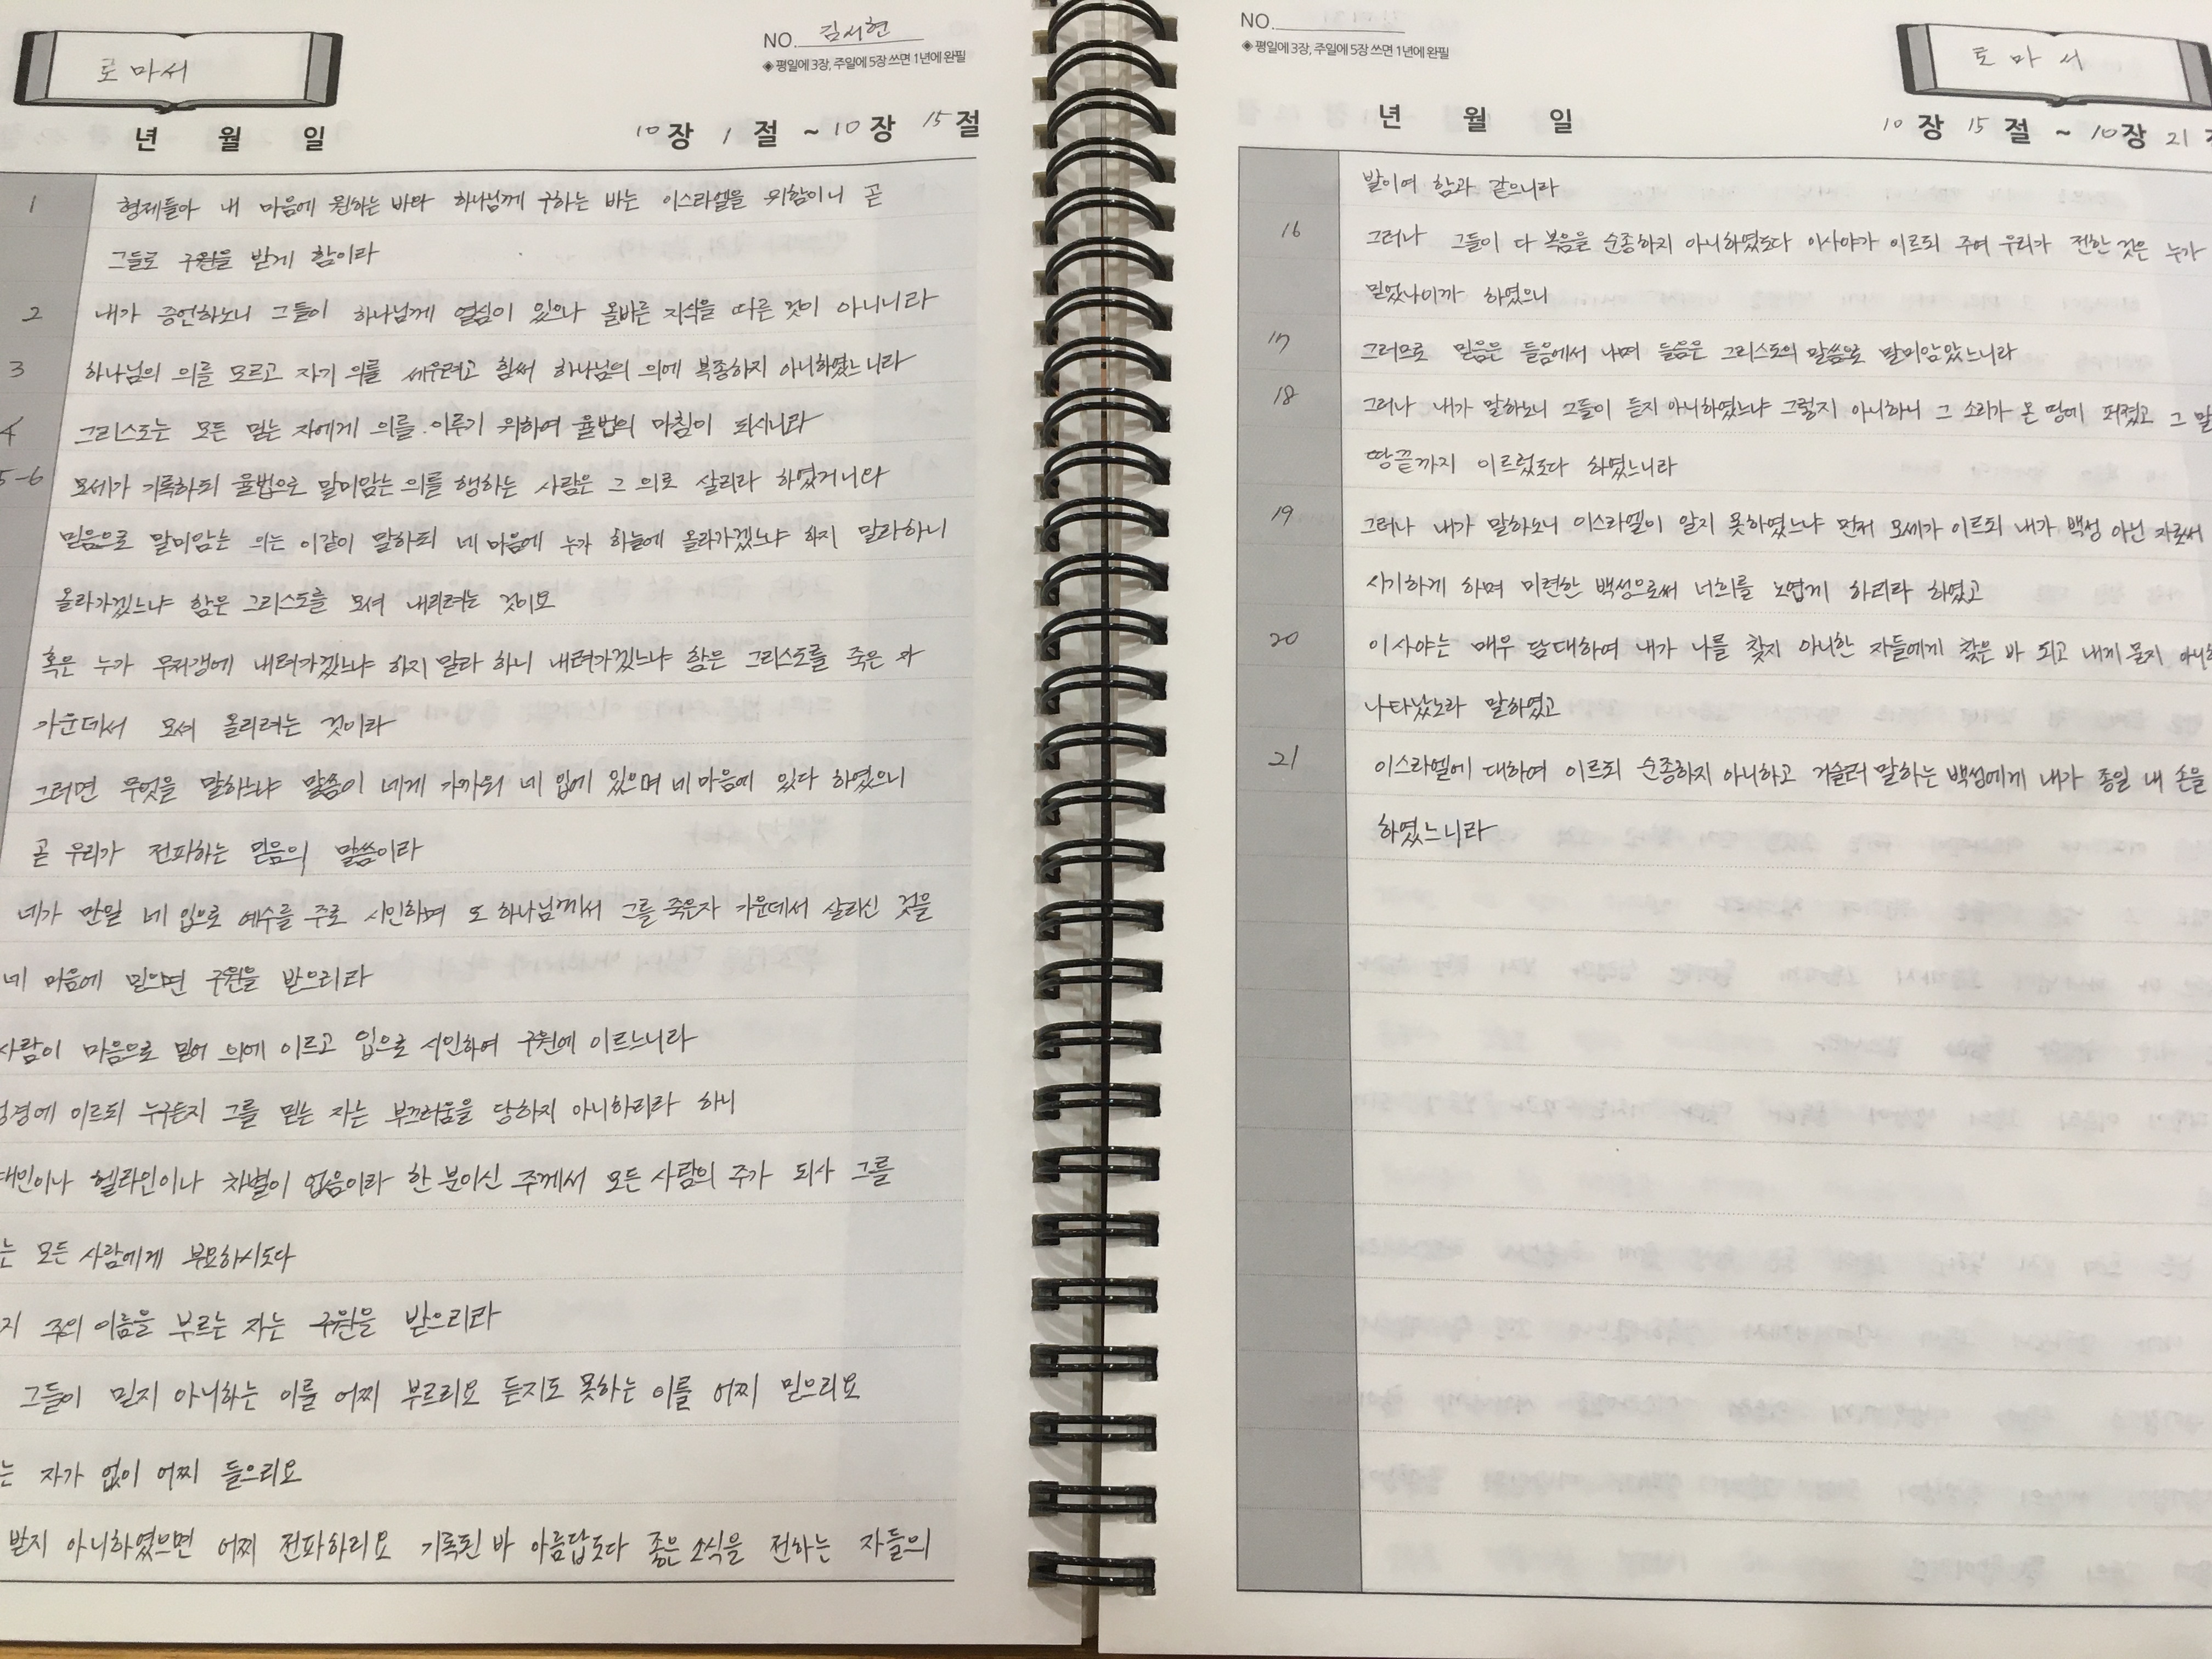 로마서
NO. 김서현
◈ 평일에 3장, 주일에 5장 쓰면 1년에 완필
년 월 일
10 장 1 절 ~ 10 장 15 절
1 형제들아 내 마음에 원하는 바와 하나님께 구하는 바는 이스라엘을 위함이니 곧
그들로 구원을 받게 함이라
2 내가 증언하노니 그들이 하나님께 열심이 있으나 올바른 지식을 따른 것이 아니니라
3 하나님의 의를 모르고 자기 의를 세우려고 힘써 하나님의 의에 복종하지 아니하였느니라
4 그리스도는 모든 믿는 자에게 의를 이루기 위하여 율법의 마침이 되시니라
5-6 모세가 기록하되 율법으로 말미암는 의를 행하는 사람은 그 의로 살리라 하였거니와
믿음으로 말미암는 의는 이같이 말하되 네 마음에 누가 하늘에 올라가겠느냐 하지 말라하니
올라가겠느냐 함은 그리스도를 모셔 내리려는 것이요
혹은 누가 무저갱에 내려가겠느냐 하지 말라 하니 내려가겠느냐 함은 그리스도를 죽은 자
가운데서 모셔 올리려는 것이라
그러면 무엇을 말하느냐 말씀이 네게 가까워 네 입에 있으며 네 마음에 있다 하였으니
곧 우리가 전파하는 믿음의 말씀이라
네가 만일 네 입으로 예수를 주로 시인하며 또 하나님께서 그를 죽은자 가운데서 살리신 것을
네 마음에 믿으면 구원을 받으리라
사람이 마음으로 믿어 의에 이르고 입으로 시인하여 구원에 이르느니라
성경에 이르되 누구든지 그를 믿는 자는 부끄러움을 당하지 아니하리라 하니
대인이나 헬라인이나 차별이 없음이라 한 분이신 주께서 모든 사람의 주가 되사 그를
는 모든 사람에게 부요하시도다
지 주의 이름을 부르는 자는 구원을 받으리라
그들이 믿지 아니하는 이를 어찌 부르리요 듣지도 못하는 이를 어찌 믿으리요
는 자가 없이 어찌 들으리요
받지 아니하였으면 어찌 전파하리요 기록된 바 아름답도다 좋은 소식을 전하는 자들의
NO.
◈ 평일에 3장, 주일에 5장 쓰면 1년에 완필
로마서
년 월 일
10 장 15 절 ~ 10 장 21
발이여 함과 같으니라
16 그러나 그들이 다 복음을 순종하지 아니하였도다 이사야가 이르되 주여 우리가 전한 것은 누가
믿었나이까 하였으니
17 그러므로 믿음은 들음에서 나며 들음은 그리스도의 말씀으로 말미암았느니라
18 그러나 내가 말하노니 그들이 듣지 아니하였느냐 그렇지 아니하니 그 소리가 온 땅에 퍼졌고 그 말
땅끝까지 이르렀도다 하였느니라
19 그러나 내가 말하노니 이스라엘이 알지 못하였느냐 먼저 모세가 이르되 내가 백성 아닌 자로써
시기하게 하며 미련한 백성으로써 너희를 노엽게 하리라 하였고
20 이사야는 매우 담대하여 내가 나를 찾지 아니한 자들에게 찾은 바 되고 내게 묻지
나타났노라 말하였고
21 이스라엘에 대하여 이르되 순종하지 아니하고 거슬러 말하는 백성에게 내가 종일 내 손을
하였느니라